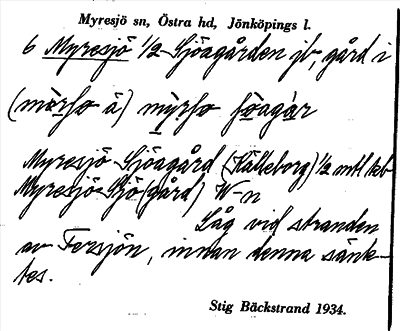 Myresjö sn, Östra hd, Jönköpings l.
6 Myresjö 1/2 Sjöagården jb, gård i
Myresjö Sjöagård (Källeborg) 1/2 mtl
Myresjö Sjö(gård) W n
Låg vid stranden
av Fersjön, innan denna sänk-
tes.
Stig Bäckstrand 1934.